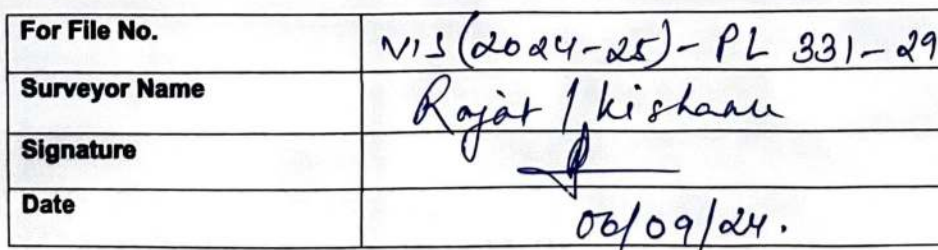 For File No. VIS(2024-25)-PL 331-29
Surveyor Name Rajat / Kishanu
Signature
Date 06/09/24.